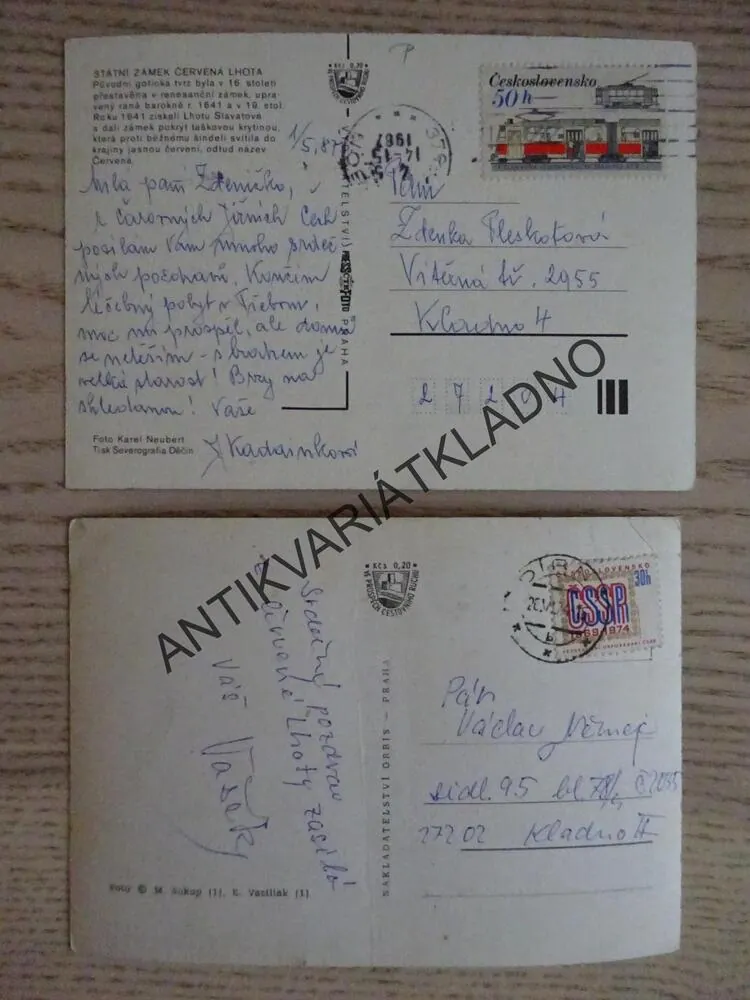 STÁTNÍ ZÁMEK ČERVENÁ LHOTA
Původní gotická tvrz byla v 16. století
přestavěna v renesanční zámek, upra-
vený raně barokně r. 1641 a v 19. stol.
Roku 1641 získali Lhotu Slavatové
a dali zámek pokrýt taškovou krytinou,
která proti běžnému šindeli svítila do
krajiny jasnou červení, odtud název
Červená.
1/5,87
Milá paní Zdeničko,
z čarovných Jižních Čech
posílám Vám mnoho srdeč
ných pozdravů. Končím
léčebný pobyt v Třeboni,
moc mi prospěl, ale domů
se netěším - s bratrem je
velká starost! Brzy na
shledanou! Vaše
Foto Karel Neubert
Tisk Severografia Děčín
Kčs 0,20
VE PROSPĚCH CESTOVNÍHO RUCHU
PRAHA
1987
Československo
50 h
Zdenka Pleskotová
Vítězná tř. 2955
Kladno 4
27204
ANTIKVARIÁTKLADNO
Kčs 0,20
VE PROSPĚCH CESTOVNÍHO RUCHU
Srdečný pozdrav
z Červené Lhoty zasílá
Váš
Foto © M. Sukop (1), K. Vasiliak (1)
NAKLADATELSTVÍ ORBIS — PRAHA
30h
ČSSR
1969 1974
Pán
Václav Němej
sídl. 95 bl
272 02 Kladno II